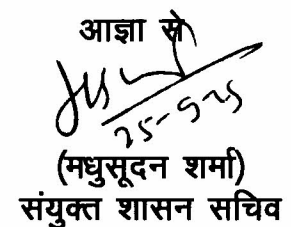 आज्ञा से
25-9-25
(मधुसूदन शर्मा)
संयुक्त शासन सचिव